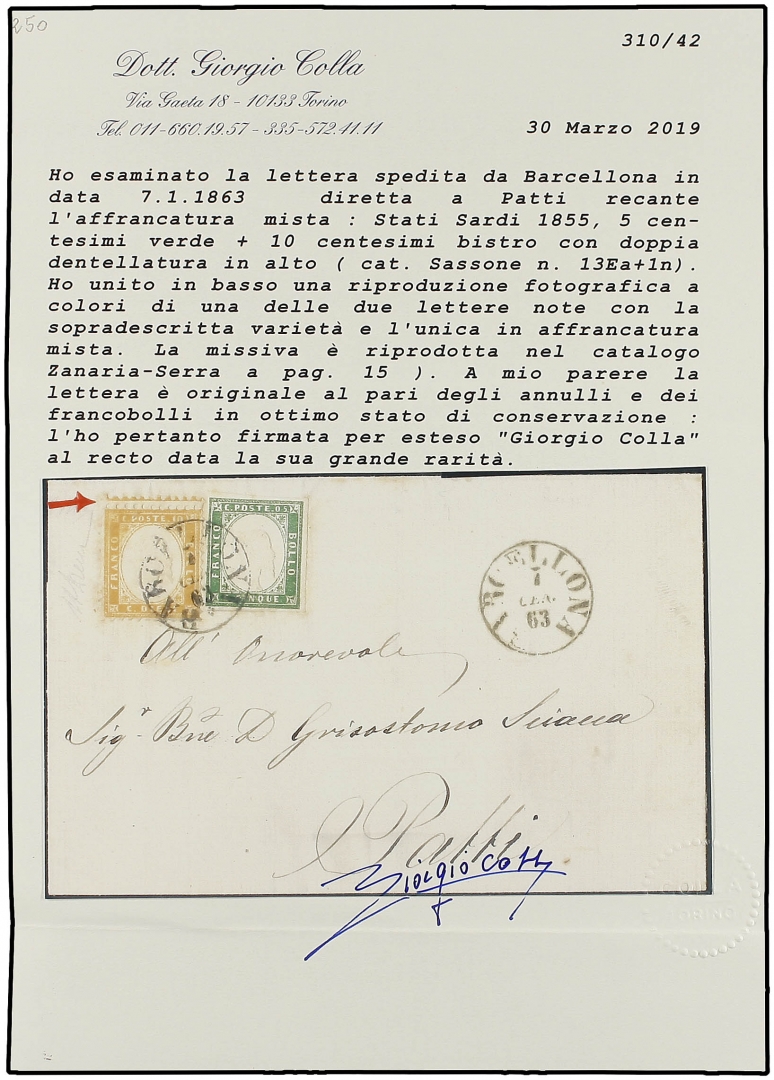 250
310/42
Dott. Giorgio Colla
Via Gaeta 18 - 10133 Torino
Tel. 011-660.19.57 - 335-572.41.11
30 Marzo 2019
Ho esaminato la lettera spedita da Barcellona in
data 7.1.1863 diretta a Patti recante
l'affrancatura mista : Stati Sardi 1855, 5 cen-
tesimi verde + 10 centesimi bistro con doppia
dentellatura in alto ( cat. Sassone n. 13Ea+1n).
Ho unito in basso una riproduzione fotografica a
colori di una delle due lettere note con la
sopradescritta varietà e l'unica in affrancatura
mista. La missiva è riprodotta nel catalogo
Zanaria-Serra a pag. 15 ). A mio parere la
lettera è originale al pari degli annulli e dei
francobolli in ottimo stato di conservazione :
l'ho pertanto firmata per esteso "Giorgio Colla"
al recto data la sua grande rarità.
C. POSTE 10
FRANCO
C. POSTE 05
FRANCO
BOLLO
BARCELLONA
7
GEN.
63
All' Onorevole
Sigr Bne D Grisostomo Sciacca
Patti
Giorgio Colla
TORINO